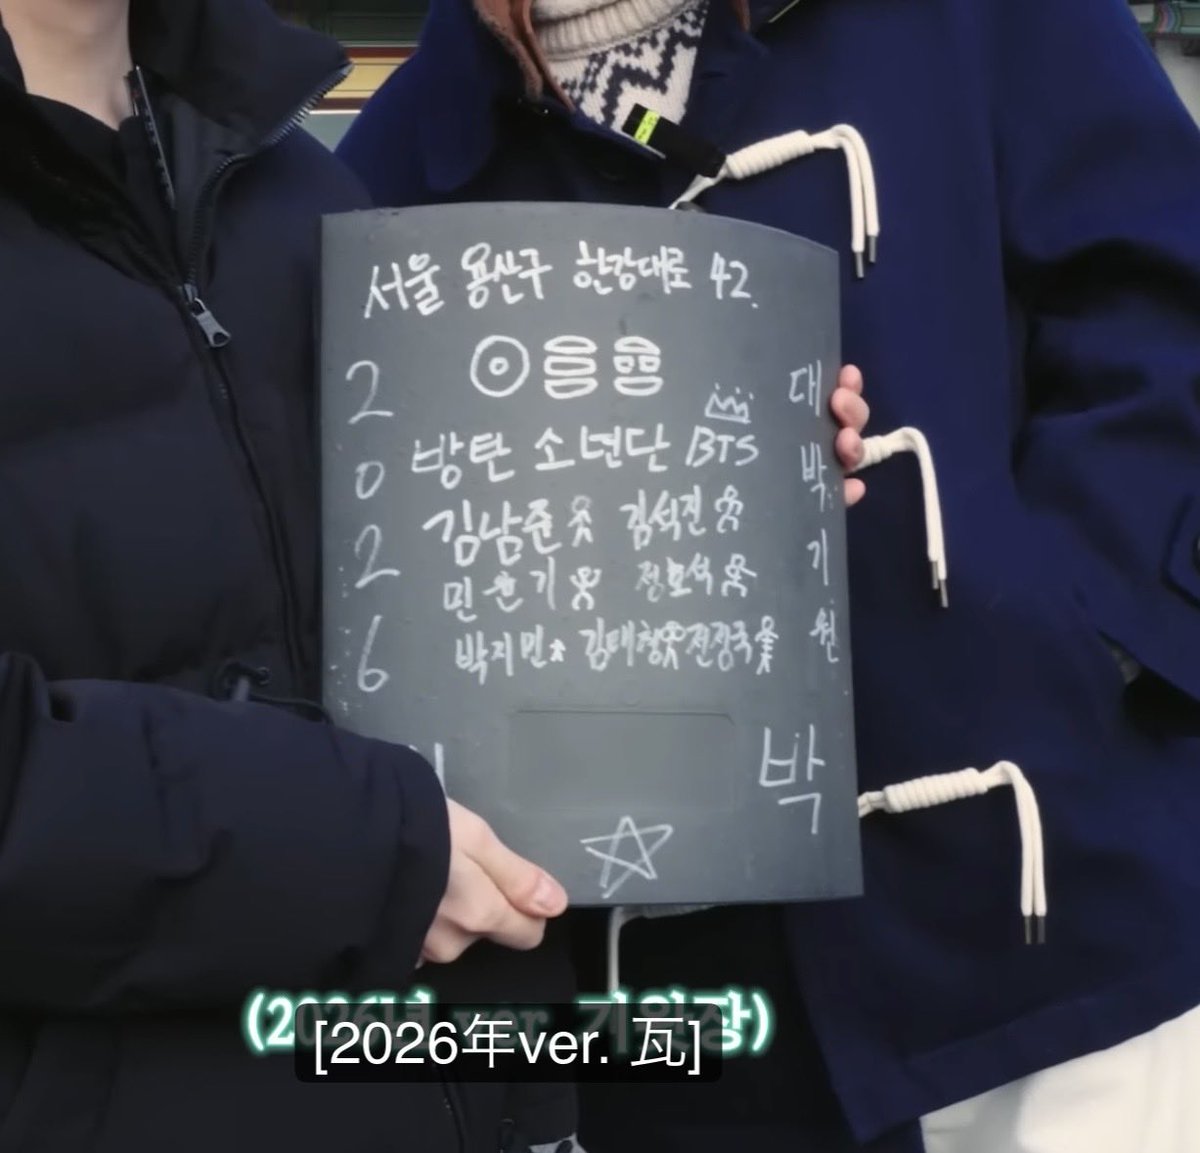 서울 용산구 한강대로 42.
2026
방탄소년단 BTS
김남준 김석진
민윤기 정호석
박지민 김태형 전정국
대박기원
박
(2026년 ver.
[2026年ver. 瓦]